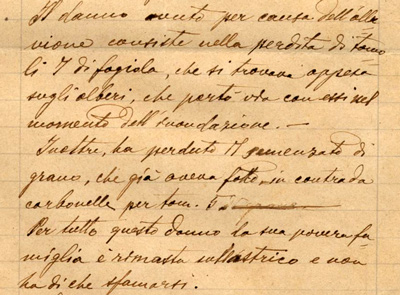 Il danno avuto per causa dell'allu
vione consiste nella perdita di tomo
li 7 di fagiola, che si trovava appesa
sugli alberi, che portò via con essi nel
momento dell'inondazione. —
Inoltre, ha perduto il semenzato di
grano, che già aveva fatto in contrada
carbonelle per tom.
Per tutto questo danno la sua povera fa
miglia è rimasta sul lastrico e non
ha di che sfamarsi.